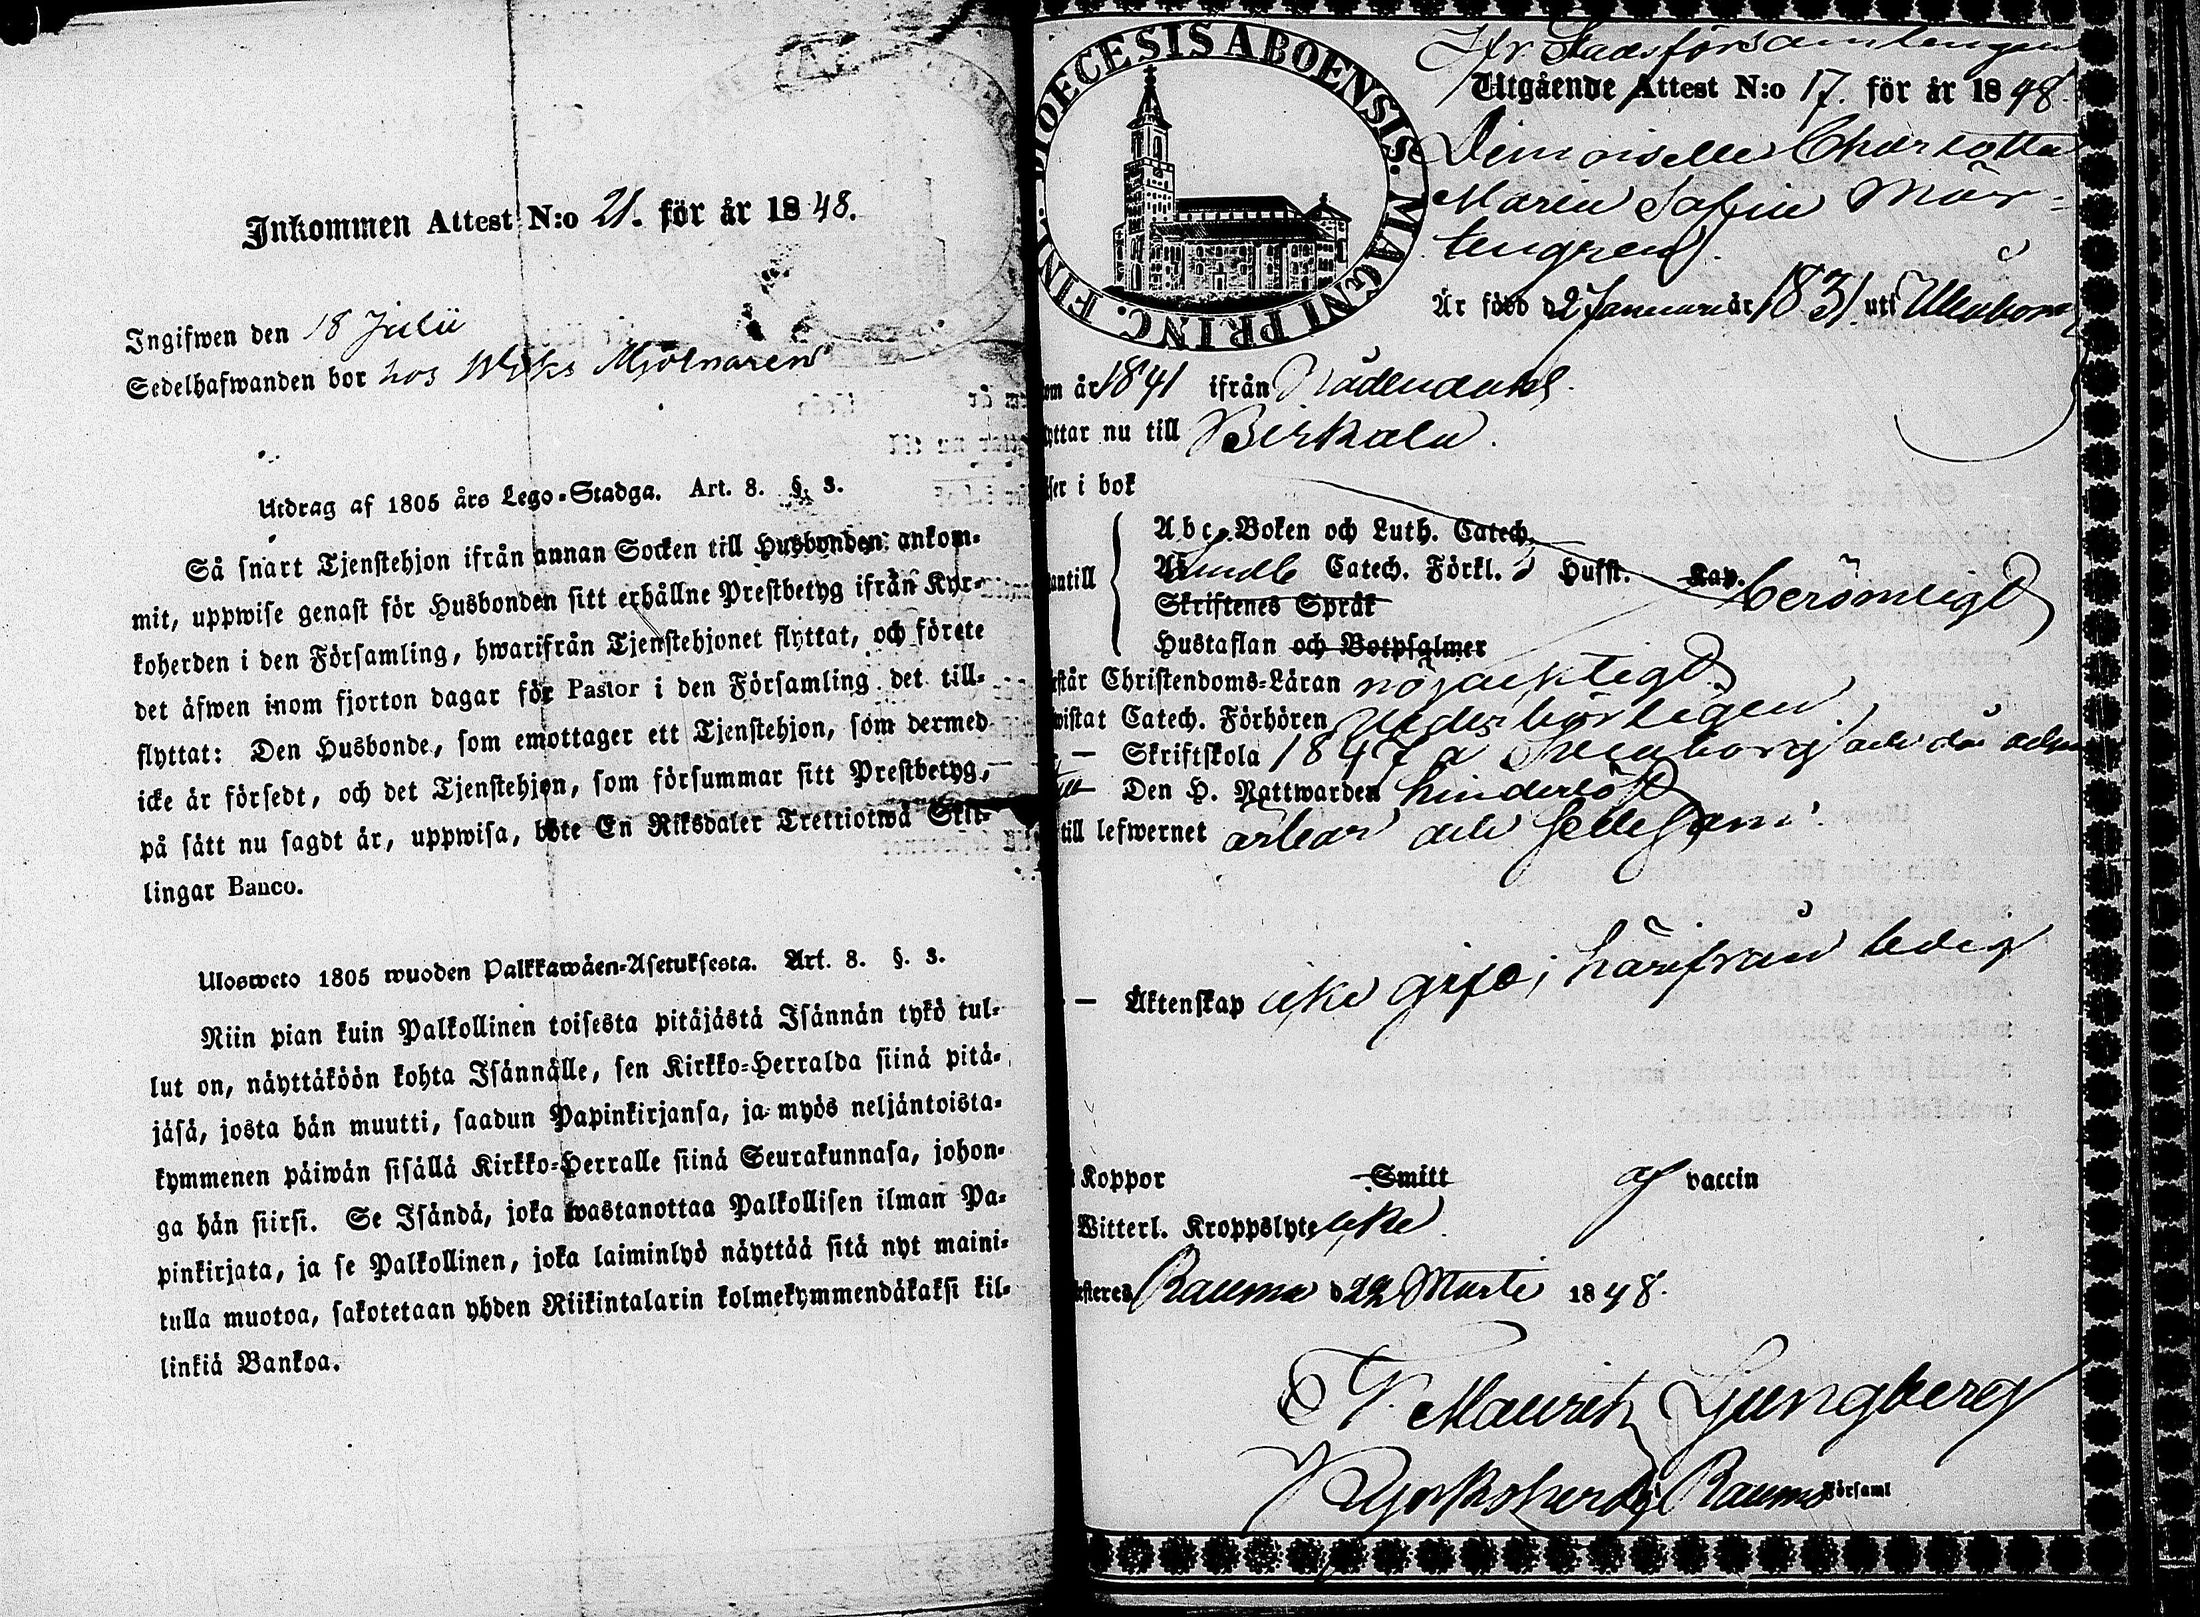 Inkommen Attest N:o 21. för år 1848.
Ingifwen den 18 Julii
Sedelhafwanden bor hos Wiks Mjölnaren
Utdrag af 1805 års Lego-Stadga. Art. 8. §. 3.
Så snart Tjenstehjon ifrån annan Socken till Husbonden ankom-
mit, uppwise genast för Husbonden sitt erhållne Prestbetyg ifrån Kyr-
koherden i den Församling, hwarifrån Tjenstehjonet flyttat, och förete
det äfwen inom fjorton dagar för Pastor i den Församling det till-
flyttat: Den Husbonde, som emottager ett Tjenstehjon, som dermed
icke är försedt, och det Tjenstehjon, som försummar sitt Prestbetyg,
på sätt nu sagdt är, uppwisa, böte En Riksdaler Trettiotwå Skil-
lingar Banco.
Ulosweto 1805 wuoden Palkkawäen-Asetuksesta. Art. 8. §. 3.
Niin pian kuin Palkollinen toisesta pitäjästä Isännän tykö tul-
lut on, näyttäköön kohta Isännälle, sen Kirkko-Herralda siinä pitä-
jäsä, josta hän muutti, saadun Papinkirjansa, ja myös neljäntoista-
kymmenen päiwän sisällä Kirkko-Herralle siinä Seurakunnasa, johon-
ga hän siirsi. Se Isändä, joka wastanottaa Palkollisen ilman Pa-
pinkirjata, ja se Palkollinen, joka laiminlyö näyttää sitä nyt maini-
tulla muotoa, sakotetaan yhden Riikintalarin kolmekymmendäkaksi kil-
linkiä Bankoa.
DIOECESIS ABOENSIS. MAGNI PRINC. FINL.
Stadsförsamlingen
Utgående Attest N:o 17. för år 1848.
Demoiselle Charlotta
Maria Sofia Mår-
tengren.
Är född d. 2 Januari år 1831. uti Uleåborg
om år 1841 ifrån Nådendahl.
yttar nu till Birkala.
ser i bok
antill
Abc-Boken och Luth. Catech.
Catech. Förkl. Hufst. Kap. berömligt
Skriftenes Språk
Hustaflan och Botpsalmer
står Christendoms-Läran nöjaktigt
wistat Catech. Förhören vederbörligen
— Skriftskola 1847 a Sveaborg och då
— Den H. Nattwarden hinderlöst
till lefwernet ärbar och sedesam.
— Äktenskap icke gift; härifrån ledig
Koppor Smitt af vaccin
Witterl. Kroppslyte icke.
steres Raumo d. 22 Martii 1848.
Maurits Ljungberg
Kyrkoherde i Raumo Församl